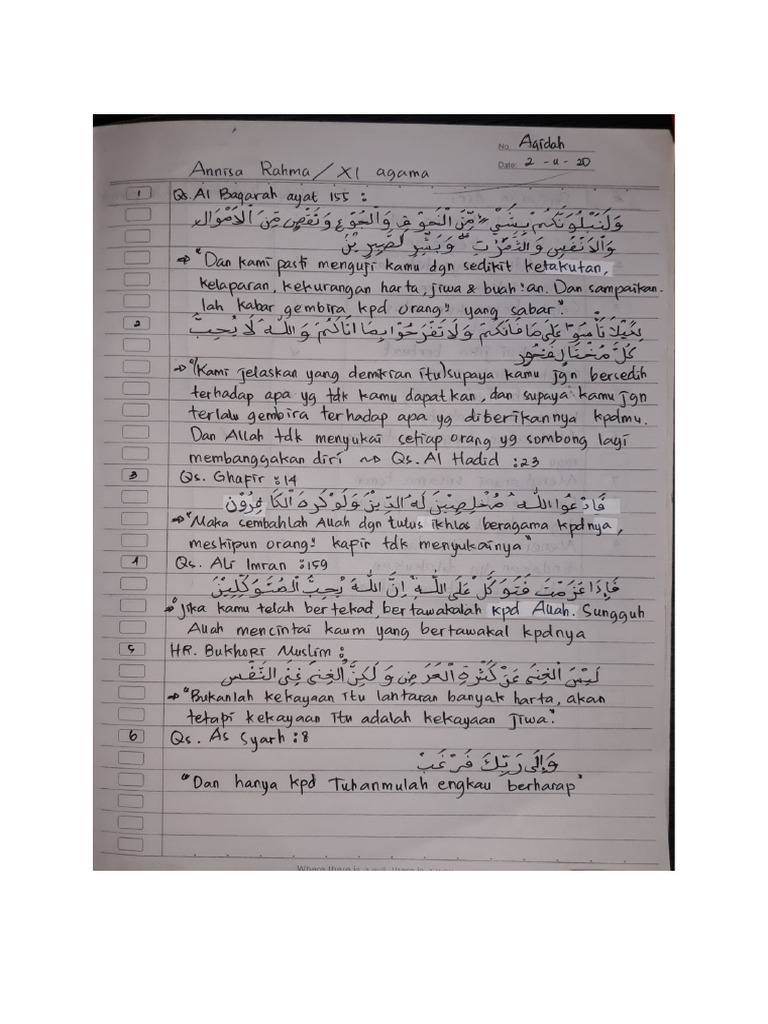 No. Aqidah
Date: 2 - 4 - 20
Annisa Rahma / XI agama
1 Qs. Al Baqarah ayat 155 :
وَلَنَبْلُوَنَّكُمْ بِشَيْءٍ مِّنَ الْخَوْفِ وَالْجُوْعِ وَنَقْصٍ مِّنَ الْاَمْوَالِ
وَالْاَنْفُسِ وَالثَّمَرٰتِ ۗ وَبَشِّرِ الصّٰبِرِيْنَ
→ "Dan kami pasti menguji kamu dgn sedikit ketakutan,
kelaparan, kekurangan harta, jiwa & buah²an. Dan sampaikan-
lah kabar gembira kpd orang² yang sabar".
2 لِكَيْلَا تَأْسَوْا عَلٰى مَا فَاتَكُمْ وَلَا تَفْرَحُوْا بِمَا اٰتَاكُمْ وَاللّٰهُ لَا يُحِبُّ
كُلَّ مُخْتَالٍ فَخُوْرٍ
→ "(Kami jelaskan yang demikian itu) supaya kamu jgn bersedih
terhadap apa yg tdk kamu dapatkan, dan supaya kamu jgn
terlalu gembira terhadap apa yg diberikannya kpdmu.
Dan Allah tdk menyukai setiap orang yg sombong lagi
membanggakan diri ~> Qs. Al Hadid : 23
3 Qs. Ghafir : 14
فَادْعُوا اللّٰهَ مُخْلِصِيْنَ لَهُ الدِّيْنَ وَلَوْ كَرِهَ الْكَافِرُوْنَ
→ "Maka sembahlah Allah dgn tulus ikhlas beragama kpdnya,
meskipun orang² kafir tdk menyukainya"
4 Qs. Ali Imran : 159
فَاِذَا عَزَمْتَ فَتَوَكَّلْ عَلَى اللّٰهِ ۗ اِنَّ اللّٰهَ يُحِبُّ الْمُتَوَكِّلِيْنَ
→ "jika kamu telah bertekad, bertawakalah kpd Allah. Sungguh
Allah mencintai kaum yang bertawakal kpdnya
5 HR. Bukhori Muslim :
لَيْسَ الْغِنَى عَنْ كَثْرَةِ الْعَرَضِ وَلَكِنَّ الْغِنَى غِنَى النَّفْسِ
→ "Bukanlah kekayaan itu lantaran banyak harta, akan
tetapi kekayaan itu adalah kekayaan jiwa."
6 Qs. As Syarh : 8
وَاِلٰى رَبِّكَ فَرْغَبْ
"Dan hanya kpd Tuhanmulah engkau berharap"